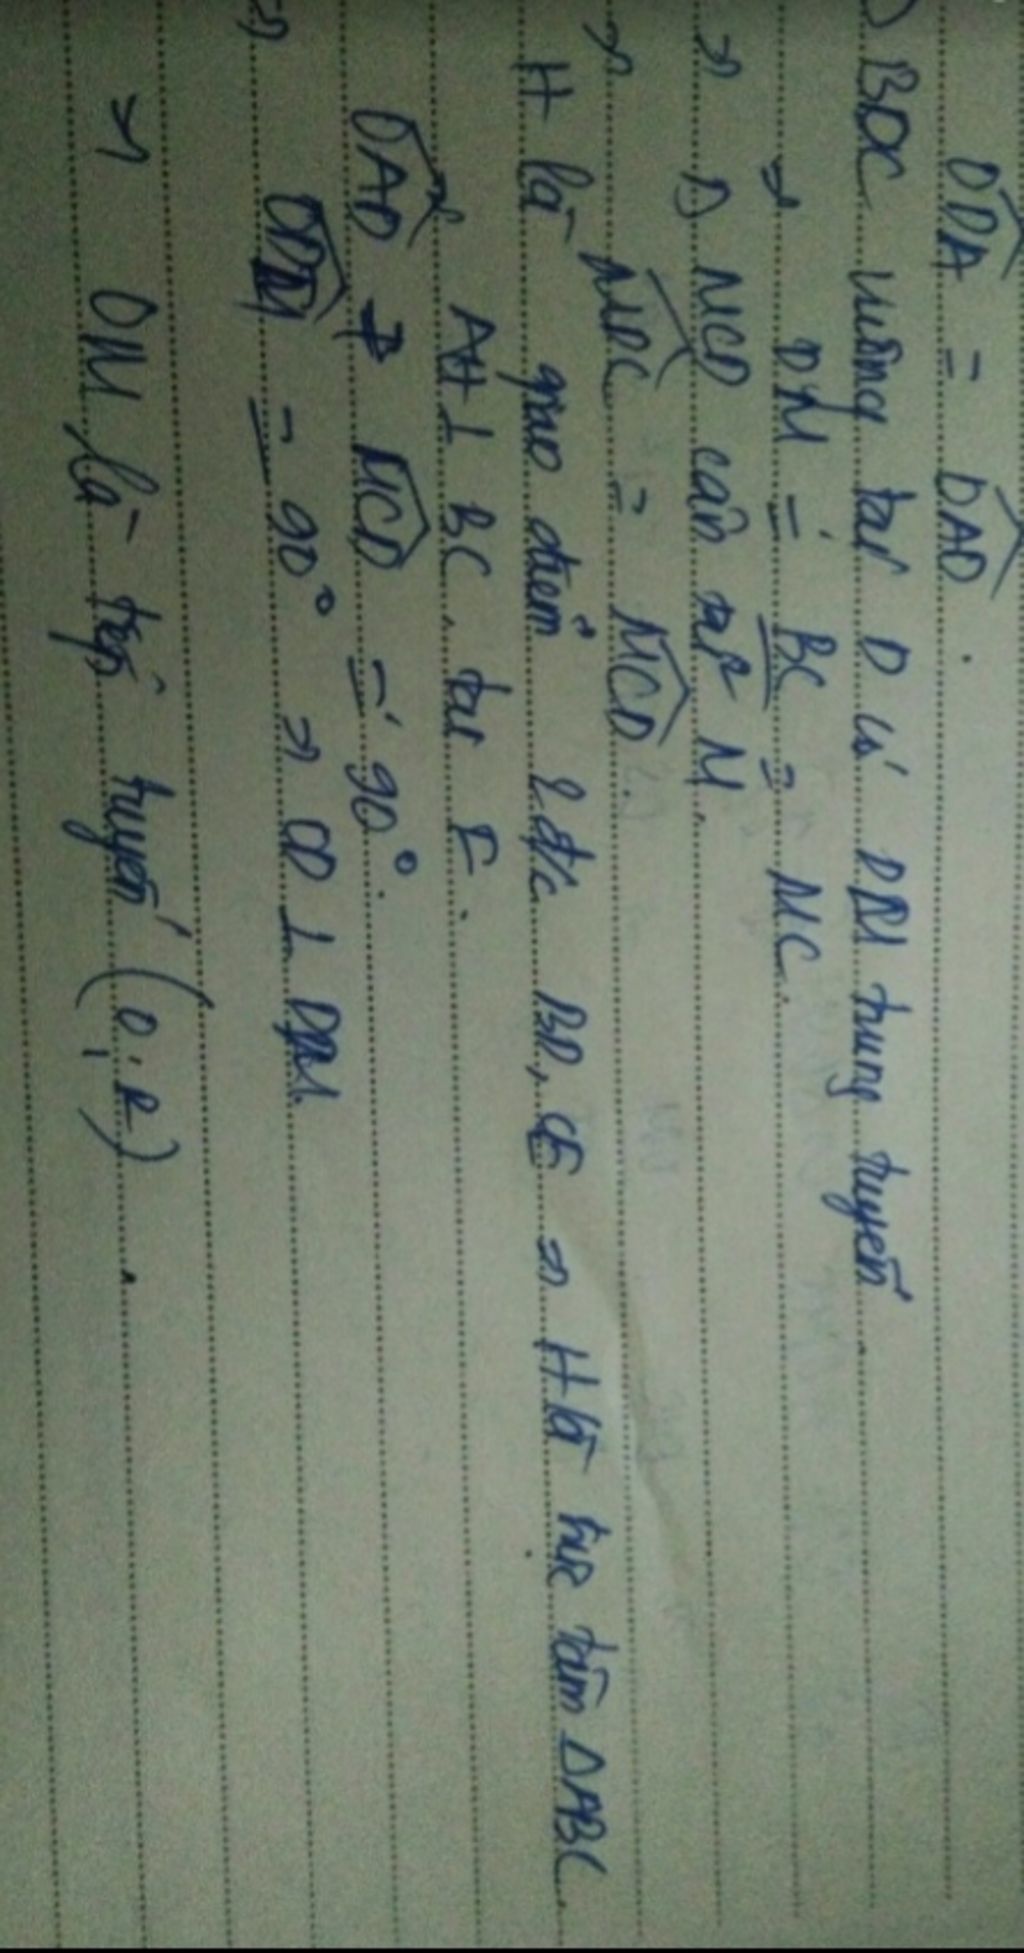 ODA = DAO.
BDC vuông tại D có DM trung tuyến.
→ DM = BC = MC.
→ Δ MCD cân tại M.
→ MDC = MCD.
H là giao điểm 2 đ/c BD, CE → H là trực tâm ΔABC.
→ AH ⊥ BC tại F.
OAD + MCD = 90°.
⇒ ODM = 90° → OD ⊥ DM.
→ DM là tiếp tuyến (O; R).